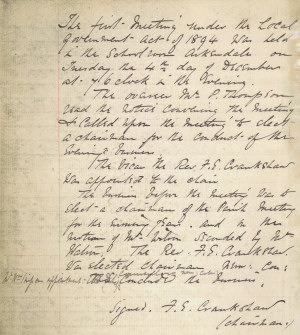 The first Meeting under the Local
Government Act of 1894 was held
in the Schoolroom Arkendale on
Tuesday the 4th day of December
at 6 o'clock in the Evening.
The overseer Mr P. Thompson
read the notice convening the Meeting
& called upon the Meeting to elect
a chairman for the conduct of the
Evening's business
The Vicar the Rev. F. G. Crankshaw
was appointed to the chair
The business before the meeting was to
elect a chairman of the Parish Meeting
for the ensuing year. And on the
motion of Mr seconded by Mr
The Rev. F. G. Crankshaw
was elected chairman
appointment concluded the business.
Signed. F. G. Crankshaw
(Chairman.)